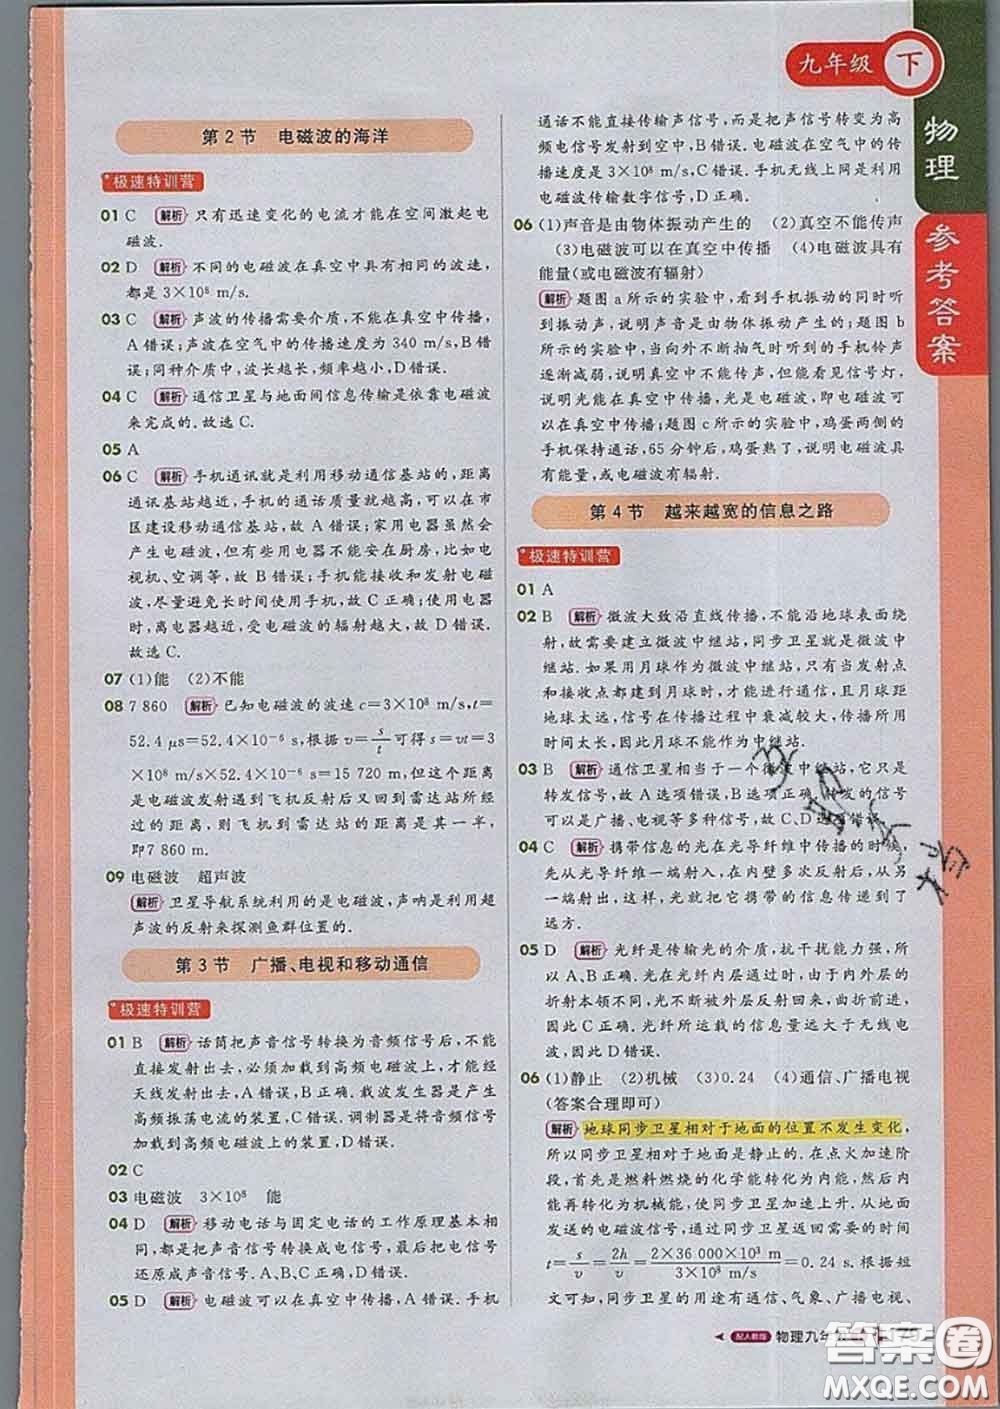 九年级 下
物理
参考答案
第2节 电磁波的海洋
极速特训营
01 C 解析 只有迅速变化的电流才能在空间激起电
磁波.
02 D 解析 不同的电磁波在真空中具有相同的波速,
都是 3×10⁸ m/s.
03 C 解析 声波的传播需要介质,不能在真空中传播,
A错误;声波在空气中的传播速度为 340 m/s,B错
误;同种介质中,波长越长,频率越小,D错误.
04 C 解析 通信卫星与地面间信息传输是依靠电磁波
来完成的.故选C.
05 A
06 C 解析 手机通讯就是利用移动通信基站的,距离
通讯基站越近,手机的通话质量就越好,可以在市
区建设移动通信基站,故A错误;家用电器虽然会
产生电磁波,但不影响人类安全,可以在厨房,比如电
视机、空调等,故B错误;手机能接收和发射电磁
波,尽量避免长时间使用手机,故C正确;使用电器
时,离电器越近,受电磁波的辐射越大,故D错误.
故选C.
07 (1)能 (2)不能
08 7 860 解析 已知电磁波的波速c=3×10⁸ m/s,t=
52.4 μs=52.4×10⁻⁶ s,根据v=s/t可得s=vt=3
×10⁸ m/s×52.4×10⁻⁶ s=15 720 m,但此距离
是电磁波发射到飞机反射后又回到雷达站所经
过的距离,则飞机到雷达站的距离是其一半,
即7 860 m.
09 电磁波 超声波
解析 卫星导航系统利用的是电磁波,声呐是利用超
声波的反射来探测鱼群位置的.
第3节 广播、电视和移动通信
极速特训营
01 B 解析 话筒把声音信号转换为音频信号后,不能
直接发射出去,必须加载到高频电磁波上,才能经
天线发射出去,A错误,B正确.载波发生器是产生
高频振荡电流的装置,C错误.调制器是将音频信号
加载到高频电磁波上的装置,D错误.
02 C
03 电磁波 3×10⁸ 能
04 D 解析 移动电话与固定电话的工作原理基本相
同,都是把声音信号转换成电信号,最后把电信号
还原成声音信号.A、B、C错误,D正确.
05 D 解析 电磁波可以在真空中传播,A错误.手机
通话不能直接传输声信号,而是把声信号转变为高
频电信号发射到空中,B错误.电磁波在空气中的传
播速度是 3×10⁸ m/s,C错误.手机无线上网是利用
电磁波传输数字信号,D正确.
06 (1)声音是由物体振动产生的 (2)真空不能传声
(3)电磁波可以在真空中传播 (4)电磁波具有
能量(或电磁波有辐射)
解析 题图a所示的实验中,看到手机振动的同时听
到振动声,说明声音是由物体振动产生的;题图b
所示的实验中,当向外不断抽气时听到的手机铃声
逐渐减弱,说明真空中不能传播声音,但能看见信号灯,
说明光能在真空中传播,光是电磁波,即电磁波可
以在真空中传播;题图c所示的实验中,鸡蛋两侧的
手机保持通话,65分钟后,鸡蛋熟了,说明电磁波具
有能量,或电磁波有辐射.
第4节 越来越宽的信息之路
极速特训营
01 A
02 B 解析 微波大致沿直线传播,不能沿地球表面绕
射,故需要建立微波中继站,同步卫星就是微波中
继站.如果用月球作为微波中继站,只有当发射点
和接收点都见到月球时,才能进行通信,且月球距
地球太远,信号在传播过程中衰减较大,传播所用
时间太长,因此月球不能作为中继站.
03 B 解析 通信卫星相当于一个微波中继站,它只是
转发信号,故A选项错误,B选项正确.转发的信号
可以是广播、电视等多种信号,故C、D选项错误.
04 C 解析 携带信息的光在光导纤维中传播的时候,
先从光导纤维一端射入,在内壁多次反射后,从另
一端射出,这样就把它携带的信息传递到了
远方.
05 D 解析 光纤是传输光的介质,抗干扰能力强,所
以A、B正确.光在光纤内层通过时,由于内外层的
折射本领不同,光被外层反射回来,曲折前进,
因此C正确.光纤所运载的信息量远大于无线电
波,因此D错误.
06 (1)静止 (2)机械 (3)0.24 (4)通信、广播电视
(答案合理即可)
解析 地球同步卫星相对于地面的位置不发生变化,
所以同步卫星相对于地面是静止的.在点火加速升
空阶段,首先是燃料燃烧的化学能转化为内能,内
能再转化为机械能,使同步卫星加速上升.从地面
发送的电磁波信号,通过同步卫星返回需要的时间
t=s/v=2h/v=2×36 000×10³ m/3×10⁸ m/s=0.24 s.根据短
文可知,同步卫星的用途有通信、气象、广播电视,
配人教版 物理九年级
答案圈
MXQE.COM